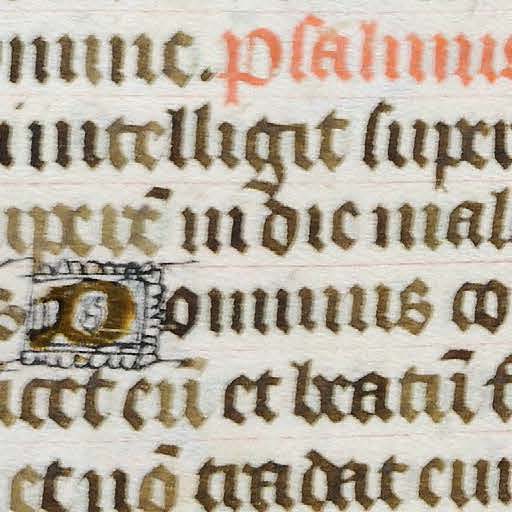 omine. psalmus
intelligit super
uperē in die mal
s Dominus co
icet eū et beatū f
et nō tradat eum